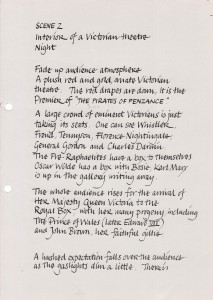 SCENE 2
Interior of a Victorian theatre
Night
Fade up audience atmosphere
A plush red and gold, ornate Victorian
theatre. The red drapes are down. It is the
Premier of "THE PIRATES OF PENZANCE"
A large crowd of eminent Victorians is just
taking its seats. One can see Whistler,
Freud, Tennyson, Florence Nightingale
General Gordon and Charles Darwin
The Pre-Raphaelites have a box to themselves
Oscar Wilde has a box with Bosie, Karl Marx
is up in the gallery writing away.
The whole audience rises for the arrival of
Her Majesty Queen Victoria to the
Royal Box - with her many progeny, including
The Prince of Wales (later Edward VII)
and John Brown, her faithful gillie
A hushed expectation falls over the audience
as the gaslights dim a little. There is